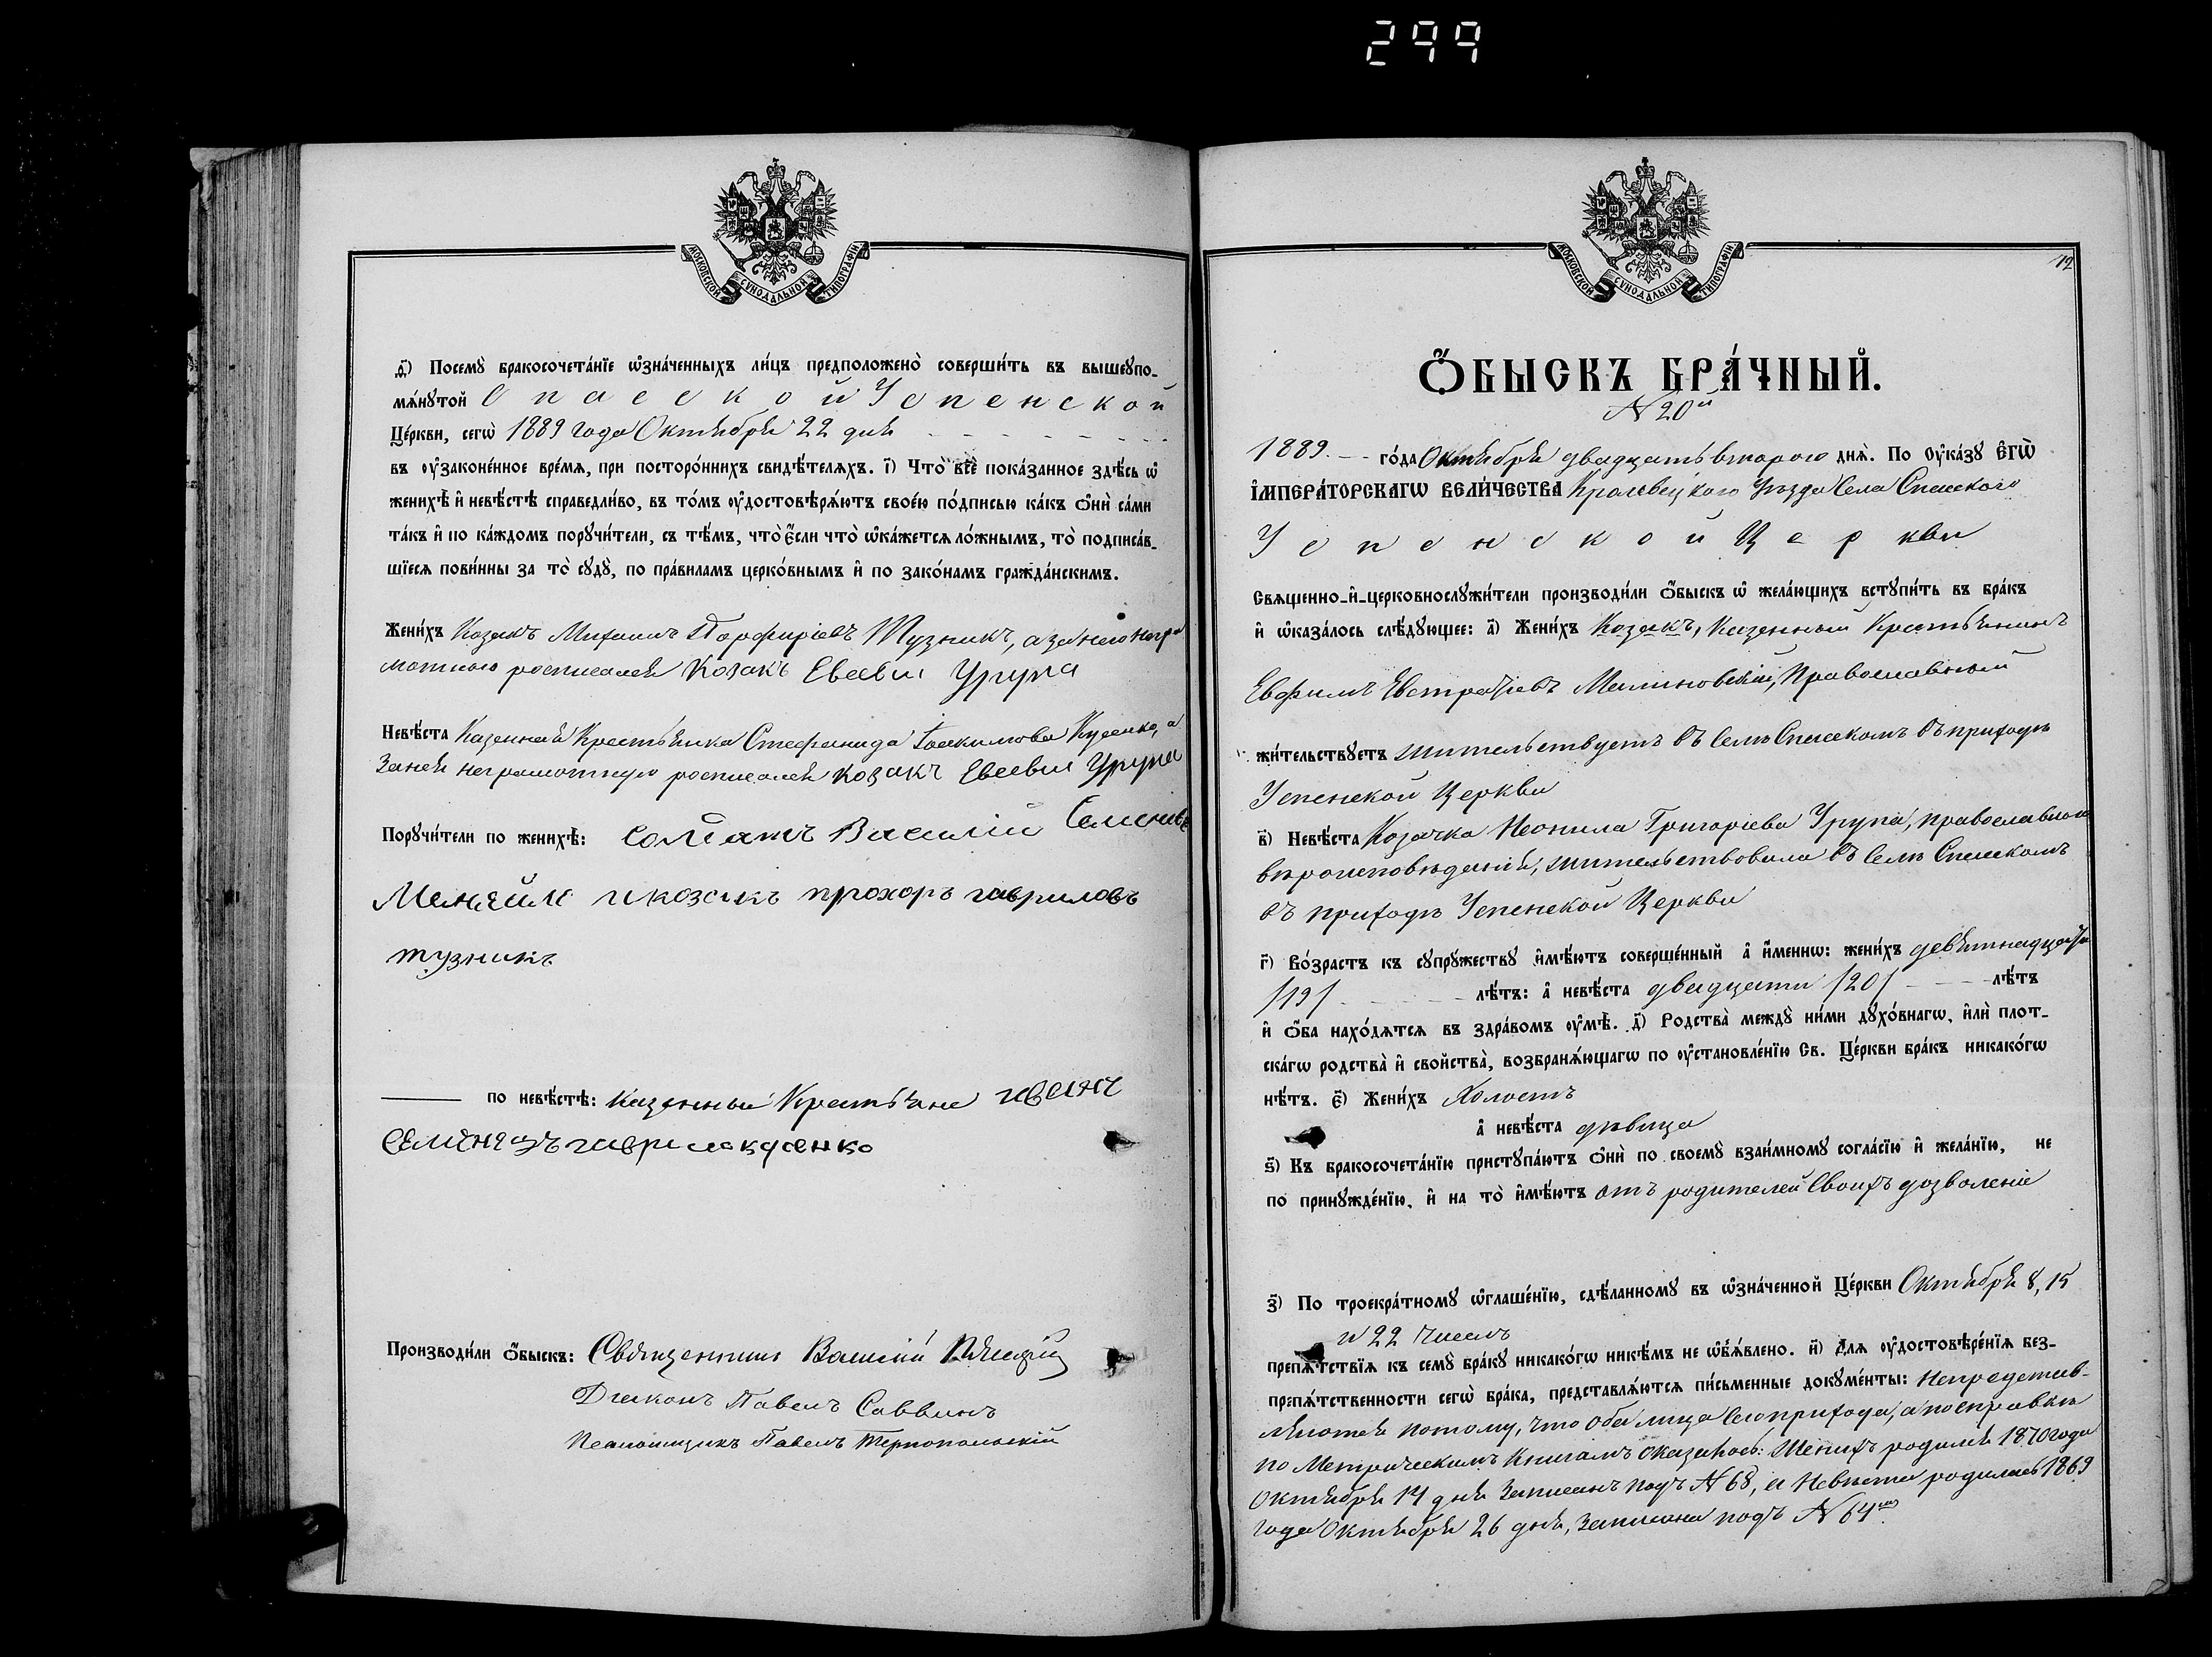 299
МОСКОВСКОЙ СѴНОДАЛЬНОЙ ТИПОГРАФІИ
Посемꙋ̀ бракосочета́нїе ѡ҆зна́ченныхъ ли́цъ предположено̀ соверши́ть въ вышеꙋпо-
мѧ́нꙋтой Спасской Успенской
Це́ркви, сегѡ̀ 1889 года Октября 22 дня
въ ᲂу҆законе́нное вре́мѧ, при посторо́ннихъ свидѣ́телѧхъ. і҃) Что̀ всѐ пока́занное здѣ́сь ѡ҆
женихѣ̀ и҆ невѣ́стѣ справедли́во, въ то́мъ ᲂу҆достовѣрѧ́ютъ свое́ю по́дписью ка́къ ѻ҆нѝ са́ми
та́къ и҆ по ка́ждомъ порꙋчи́тели, съ тѣ́мъ, что̀ є҆́сли что̀ ѡ҆ка́жется ло́жнымъ, то̀ подписа́в-
шїеся пови́нны за то̀ сꙋдꙋ̀, по пра́виламъ церко́внымъ и҆ по зако́намъ гражда́нскимъ.
Жени́хъ Козакъ Михаилъ Порфиріевъ Тузникъ, а за него неграмотного
росписался Козакъ Евсевій Урупа
Невѣ́ста Казенная Крестьянка Стефанида Іоакимова Куценко, а
за нея неграмотную росписался козакъ Евсевій Урупа
Порꙋчи́тели по женихѣ̀: Солдатъ Василій Семеновъ
и козакъ прохоръ гавриловъ
тузникъ
по невѣ́стѣ: Казенные Крестьяне
Производи́ли ѻ҆́быскъ: Священникъ Василій
Діаконъ Павелъ Саввинъ
Псаломщикъ Павелъ Тернопольскій
МОСКОВСКОЙ СѴНОДАЛЬНОЙ ТИПОГРАФІИ
12
Ѻ҆́БЫСКЪ БРА́ЧНЫЙ.
№ 20й
1889 го́да Октября двадцать втораго днѧ̀. По Оу҆ка́зꙋ Є҆гѡ̀
І҆мпера́торскагѡ Вели́чества Кролевецкого Уѣзда Села Спасского
Успенской Церкви
Свѧщенно-и҆-церковнослꙋжи́тели производи́ли ѻ҆́быскъ ѡ҆ жела́ющихъ встꙋпи́ть въ бра́къ
и҆ ѡ҆каза́лось слѣ́дꙋющее: а҃) Жени́хъ Козакъ, Казенный Крестьянинъ
Евфимъ Евстратіевъ Малиновскій, Православный
жи́тельствꙋетъ жительствуетъ въ Селѣ Спасскомъ въ приходѣ
Успенской Церкви
в҃) Невѣ́ста Козачка Неонила Григоріева Урупа, православного
вѣроисповѣданія, жительствовала въ Селѣ Спасскомъ
въ приходѣ Успенской Церкви
г҃) Во́зрастъ къ сꙋпрꙋ́жествꙋ и҆мѣ́ютъ соверше́нный а҆ и҆́меннѡ: жени́хъ девятнадцати
/19/ лѣ́тъ: а҆ невѣ́ста двадцати /20/ лѣ́тъ
и҆ ѻ҆́ба нахо́дѧтсѧ въ здра́вомъ ᲂу҆мѣ̀. д҃) Родства̀ междꙋ̀ ни́ми дꙋхо́внагѡ, и҆лѝ плот-
ска́гѡ родства̀ и҆ свойства̀, возбранѧ́ющагѡ по ᲂу҆становле́нїю Св. Це́ркви бра́къ никако́гѡ
нѣ́тъ. є҃) Жени́хъ Холостъ
а҆ невѣ́ста дѣвица
ѕ҃) Къ бракосочета́нїю пристꙋпа́ютъ ѻ҆нѝ по своемꙋ̀ взаи́мномꙋ согла́сїю и҆ жела́нїю, не
по принꙋжде́нїю, и҆ на то̀ и҆мѣ́ютъ отъ родителей своихъ дозволеніе
з҃) По троекра́тномꙋ ѡ҆глаше́нїю, сдѣ́ланномꙋ въ ѡ҆зна́ченной Це́ркви Октября 8, 15
и 22 чиселъ
препѧ́тствїѧ къ семꙋ̀ бра́кꙋ никако́гѡ никѣ́мъ не ѡ҆б̾ѧ́влено. и҃) Длѧ ᲂу҆достовѣре́нїѧ без-
препѧ́тственности сегѡ̀ бра́ка, представлѧ́ютсѧ пи́сьменные докꙋме́нты: Непредстав-
ляются потому, что оба лица сего прихода, а по справкѣ
по Метрическимъ Книгамъ оказалось: Женихъ родился 1870 года
Октября 14 дня записанъ подъ № 68, а Невѣста родилась 1869
года Октября 26 дня, записана подъ № 64